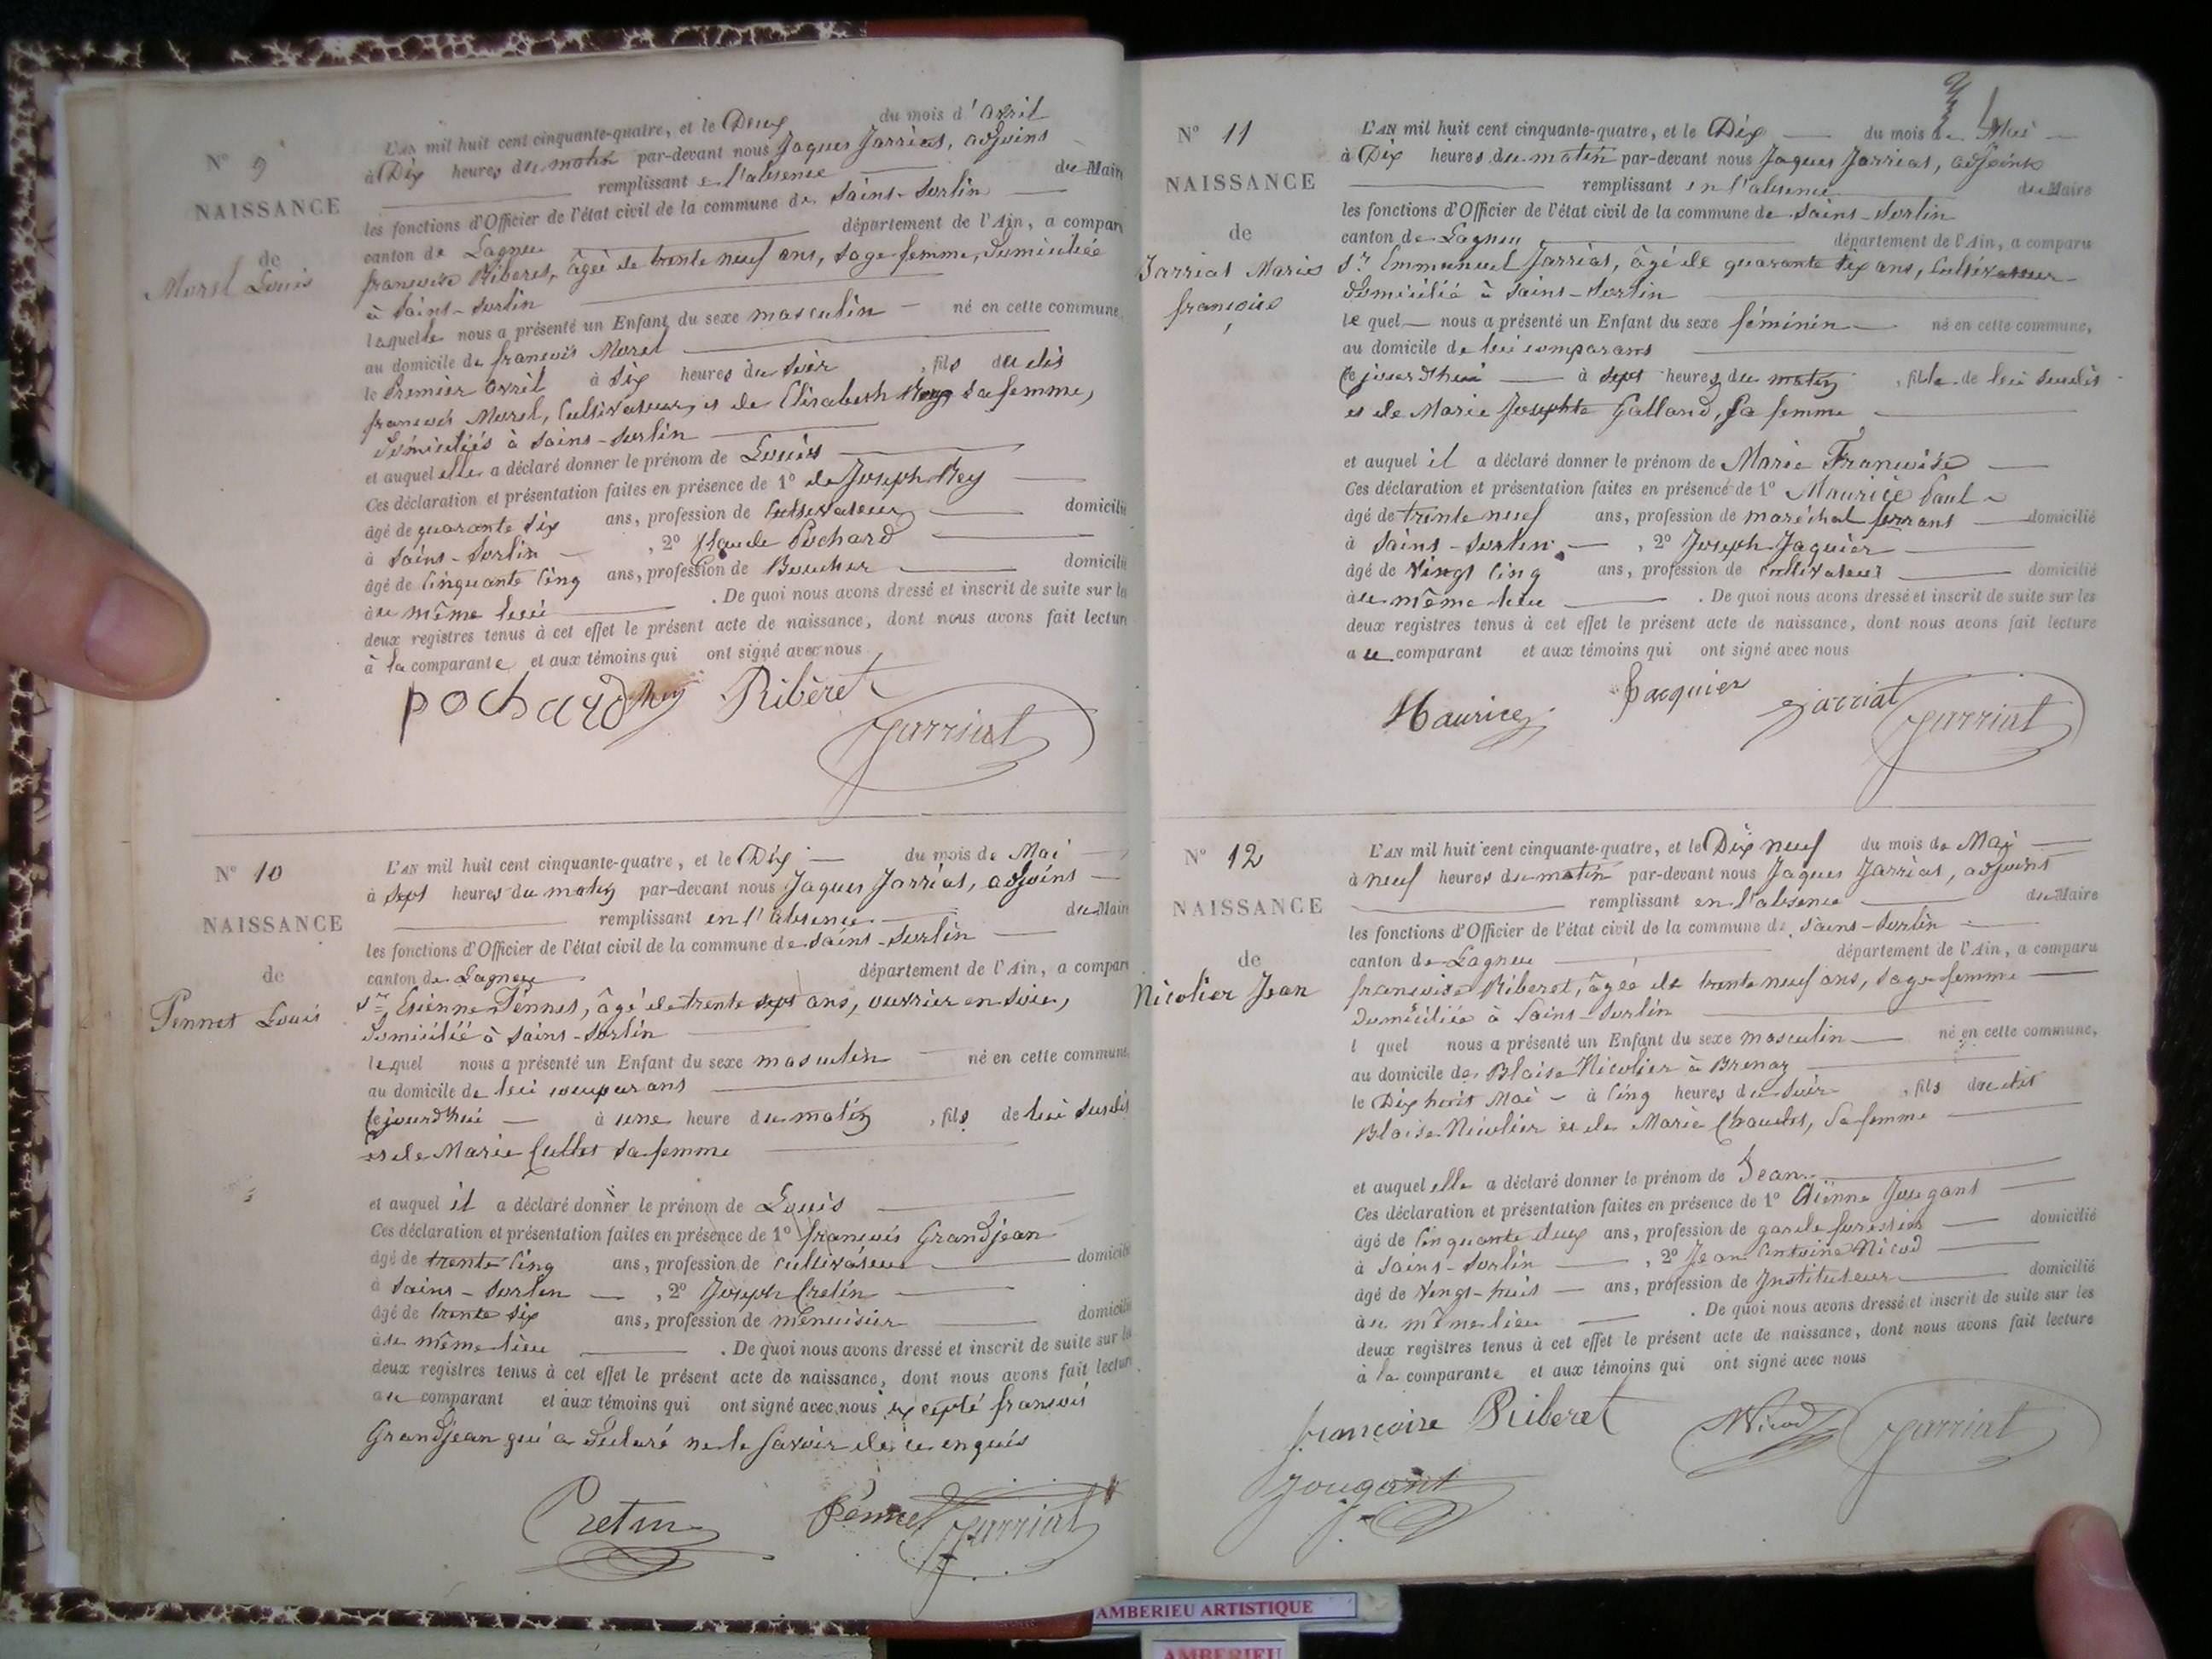 N° 9
NAISSANCE
de
Morel Louis
L'AN mil huit cent cinquante-quatre, et le Deux du mois d'avril
à Dix heures du matin par-devant nous Jaques Jarriat, adjoint
remplissant en l'absence du Maire
les fonctions d'Officier de l'état civil de la commune de Saint-Sorlin
canton de Lagneu département de l'Ain, a comparu
françoise Riberet, âgée de trente neuf ans, sage femme, domiciliée
à Saint-Sorlin
laquelle nous a présenté un Enfant du sexe masculin né en cette commune,
au domicile de françois Morel
le Premier avril à Six heures du soir, fils du dit
françois Morel, Cultivateur, et de Elisabeth Rey sa femme,
Domiciliés à Saint-Sorlin
et auquel elle a déclaré donner le prénom de Louis
Ces déclaration et présentation faites en présence de 1° de Joseph Rey
âgé de quarante six ans, profession de Cultivateur domicilié
à Saint-Sorlin, 2° Claude Pochard
âgé de Cinquante Cinq ans, profession de Boucher domicilié
à au même lieu. De quoi nous avons dressé et inscrit de suite sur les
deux registres tenus à cet effet le présent acte de naissance, dont nous avons fait lecture
à la comparante et aux témoins qui ont signé avec nous
pochard Rey Ribèret
Jarriat
N° 10
NAISSANCE
de
Pennet Louis
L'AN mil huit cent cinquante-quatre, et le Dix du mois de Mai
à Sept heures du matin par-devant nous Jaques Jarriat, adjoint
remplissant en l'absence du Maire
les fonctions d'Officier de l'état civil de la commune de Saint-Sorlin
canton de Lagneu département de l'Ain, a comparu
Sr. Etienne Pennet, âgé de trente sept ans, ouvrier en soie,
Domicilié à Saint-Sorlin
lequel nous a présenté un Enfant du sexe masculin né en cette commune,
au domicile de lui comparant
Cejourd'hui à une heure du matin, fils de lui susdit
et de Marie Cullet sa femme
et auquel il a déclaré donner le prénom de Louis
Ces déclaration et présentation faites en présence de 1° françois Grandjean
âgé de trente Cinq ans, profession de Cultivateur domicilié
à Saint-Sorlin, 2° Joseph Cretin
âgé de trente six ans, profession de Menuisier domicilié
à au même lieu. De quoi nous avons dressé et inscrit de suite sur les
deux registres tenus à cet effet le présent acte de naissance, dont nous avons fait lecture
au comparant et aux témoins qui ont signé avec nous excepté françois
Grandjean qui a Déclaré ne le savoir de ce enquis
Cretin Pennet Jarriat
N° 11
NAISSANCE
de
Jarriat Marie
françoise
L'AN mil huit cent cinquante-quatre, et le Dix du mois de Mai
à Dix heures du matin par-devant nous Jaques Jarriat, adjoint
remplissant en l'absence du Maire
les fonctions d'Officier de l'état civil de la commune de Saint-Sorlin
canton de Lagneu département de l'Ain, a comparu
Sr. Emmanuel Jarriat, âgé de quarante six ans, Cultivateur
domicilié à Saint-Sorlin
lequel nous a présenté un Enfant du sexe féminin né en cette commune,
au domicile de lui comparant
Cejourd'hui à sept heures du matin, fille de lui susdit
et de Marie Josephte Galland, sa femme
et auquel il a déclaré donner le prénom de Marie Françoise
Ces déclaration et présentation faites en présence de 1° Maurice Paul
âgé de trente neuf ans, profession de maréchal ferrant domicilié
à Saint-Sorlin, 2° Joseph Jaquier
âgé de Vingt Cinq ans, profession de cultivateur domicilié
à au même lieu. De quoi nous avons dressé et inscrit de suite sur les
deux registres tenus à cet effet le présent acte de naissance, dont nous avons fait lecture
au comparant et aux témoins qui ont signé avec nous
Maurice Jacquier Jarriat Jarriat
N° 12
NAISSANCE
de
Nicolier Jean
L'AN mil huit cent cinquante-quatre, et le Dix neuf du mois de Mai
à neuf heures du matin par-devant nous Jaques Jarriat, adjoint
remplissant en l'absence du Maire
les fonctions d'Officier de l'état civil de la commune de Saint-Sorlin
canton de Lagneu département de l'Ain, a comparu
françoise Riberet, âgée de trente neuf ans, sage femme
Domiciliée à Saint-Sorlin
l quel nous a présenté un Enfant du sexe masculin né en cette commune,
au domicile de Blaise Nicolier à Brenaz
le Dix huit Mai à Cinq heures du soir, fils du dit
Blaise Nicolier et de Marie Chaudet, sa femme
et auquel elle a déclaré donner le prénom de Jean
Ces déclaration et présentation faites en présence de 1° Etienne Jougant
âgé de Cinquante deux ans, profession de garde forestier domicilié
à Saint-Sorlin, 2° Jean Antoine Nicod
âgé de Vingt-huit ans, profession de Instituteur domicilié
à au même lieu. De quoi nous avons dressé et inscrit de suite sur les
deux registres tenus à cet effet le présent acte de naissance, dont nous avons fait lecture
à la comparante et aux témoins qui ont signé avec nous
françoise Riberet Nicod Jarriat
Jougant
AMBERIEU ARTISTIQUE
AMBERIEU